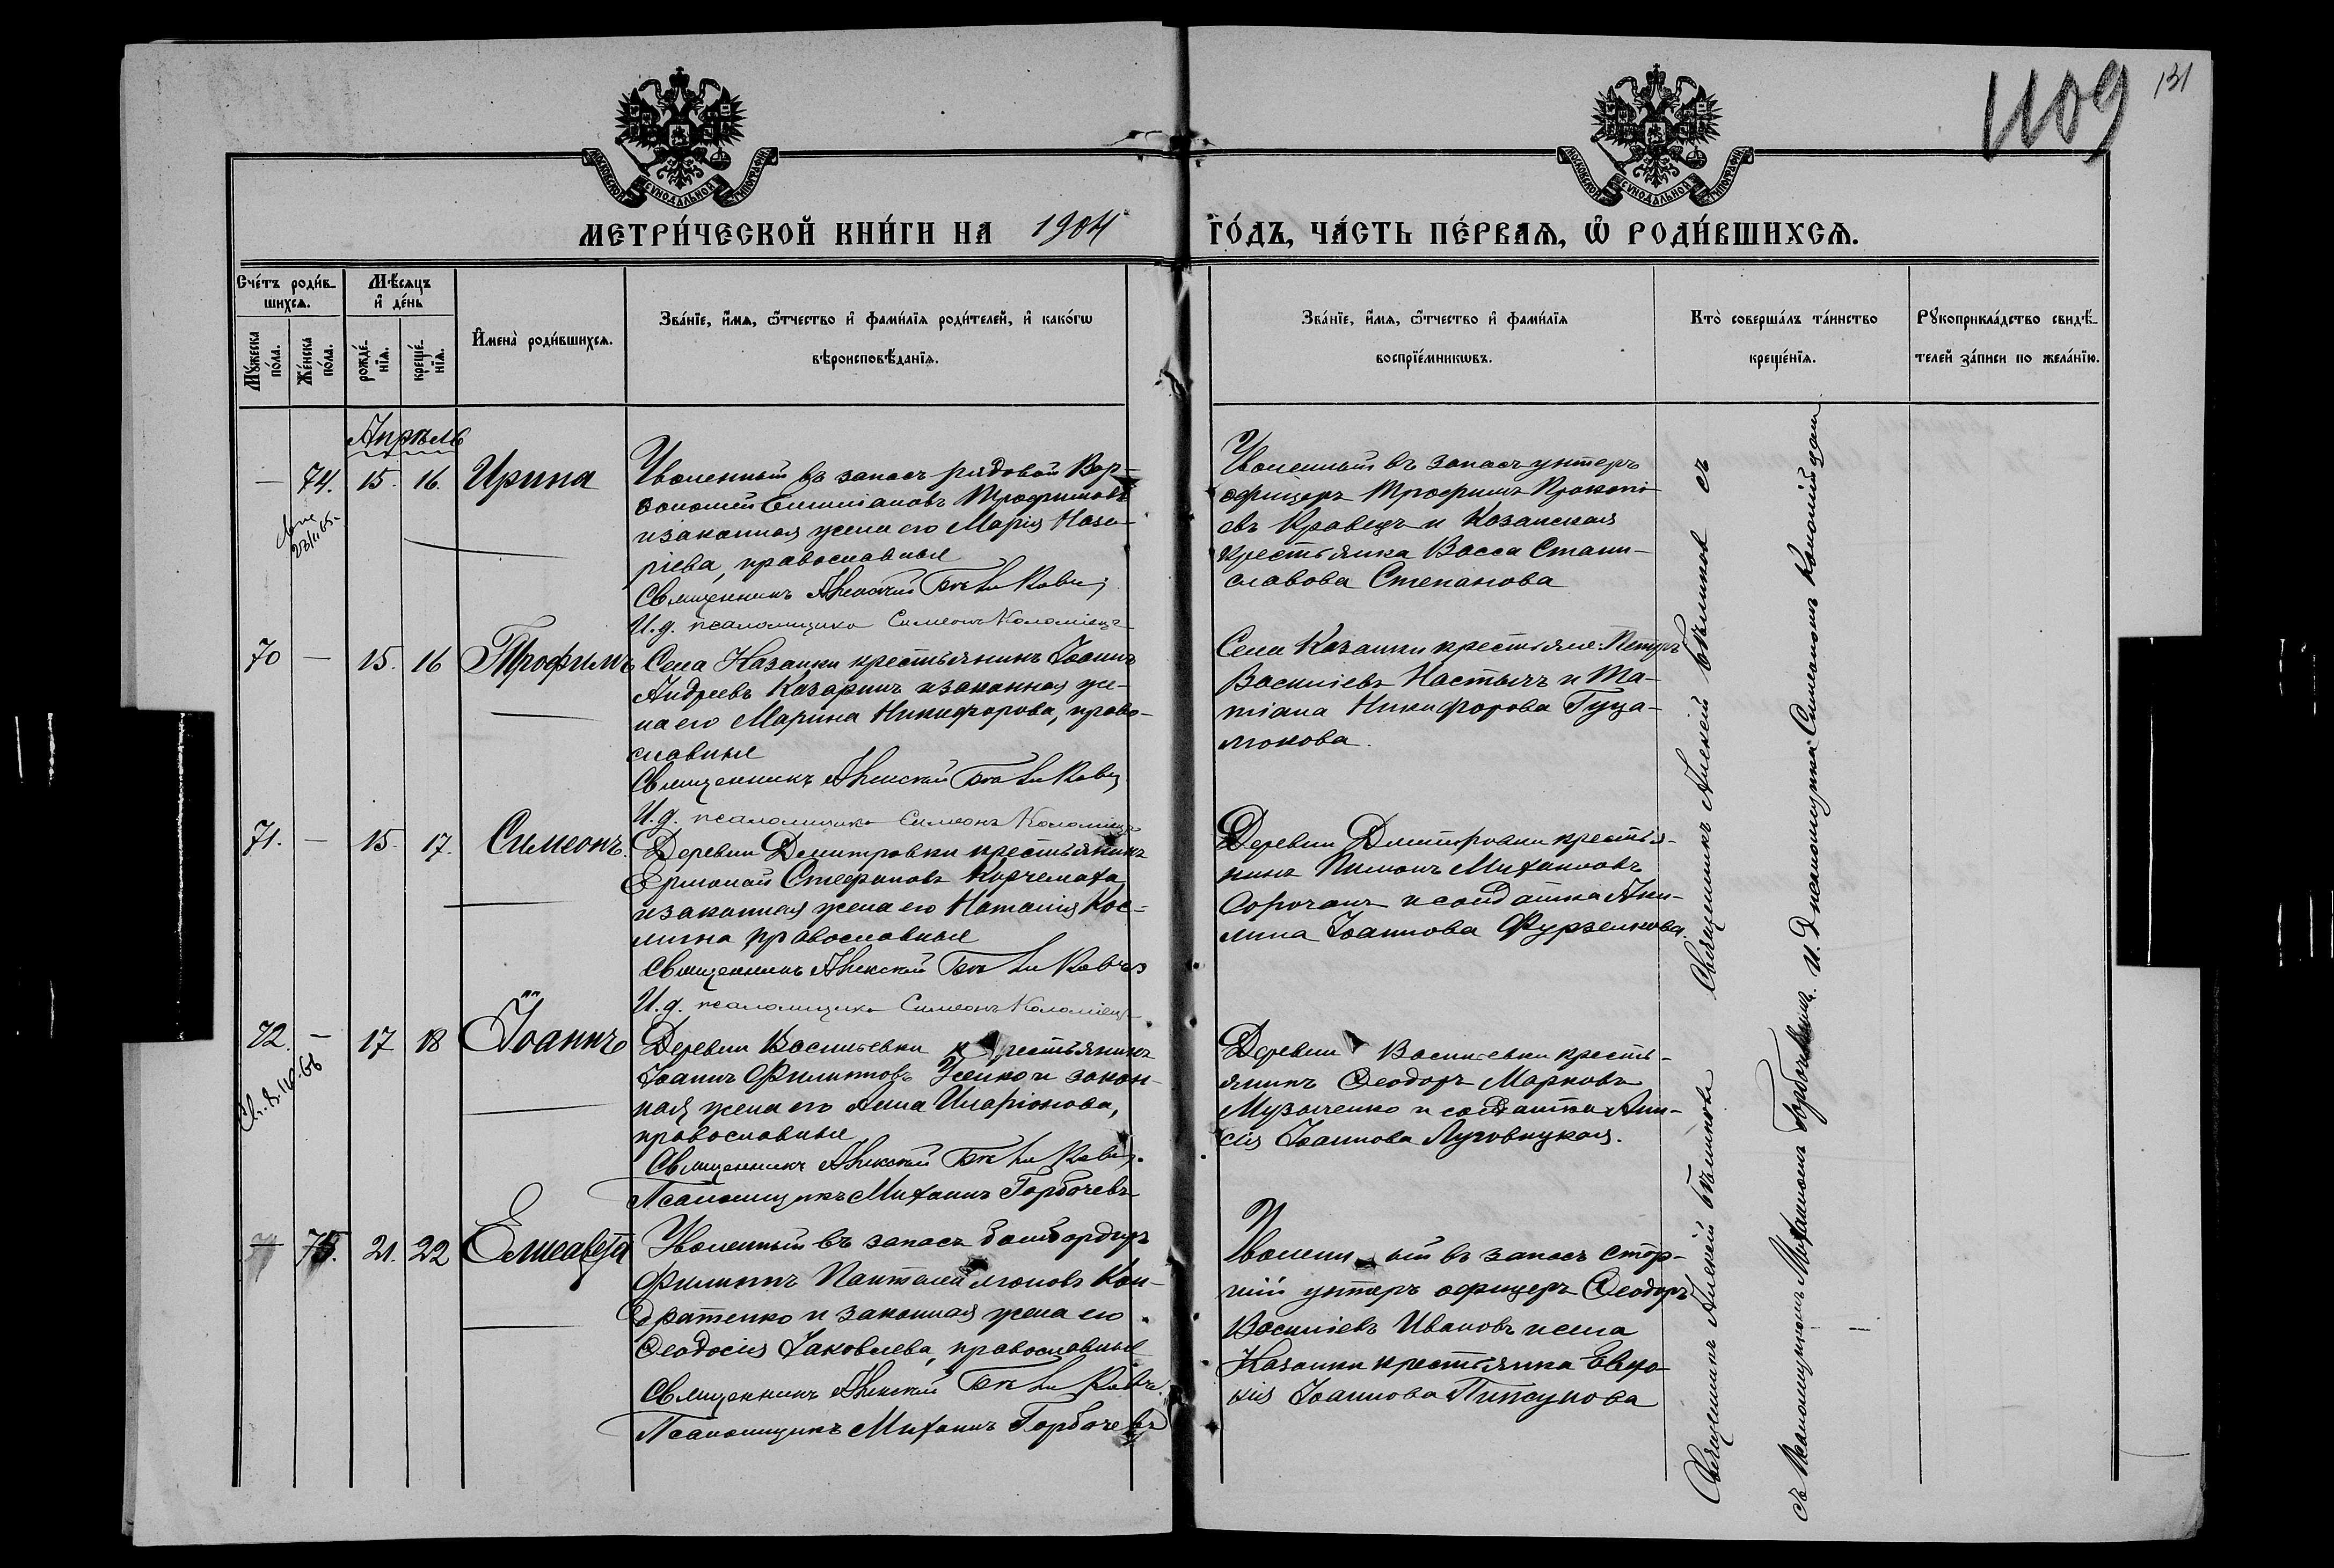 1109 131
МОСКОВСКОЙ СѴНОДАЛЬНОЙ ТИПОГРАФІИ
МОСКОВСКОЙ СѴНОДАЛЬНОЙ ТИПОГРАФІИ
МЕТРИ́ЧЕСКОЙ КНИ́ГИ НА 1904 ГО́ДЪ, ЧА́СТЬ ПЕ́РВАѦ, Ѡ҆ РОДИ́ВШИХСѦ.
Сче́тъ роди́в-
шихсѧ.
Мꙋ́жеска
по́ла.
Же́нска
по́ла.
Мѣ́сѧцъ
и҆ де́нь
рожде́-
нїѧ.
креще́-
нїѧ.
И҆мена̀ роди́вшихсѧ.
Зва́нїе, и҆́мѧ, ѻ҆́тчество и҆ фами́лїѧ роди́телей, и҆ како́гѡ
вѣроисповѣ́данїѧ.
Зва́нїе, и҆́мѧ, ѻ҆́тчество и҆ фами́лїѧ
воспрїе́мникѡвъ.
Кто̀ соверша́лъ та́инство
креще́нїѧ.
Рꙋкоприкла́дство свидѣ́-
телей за́писи по жела́нїю.
Апрѣль
— 74. 15. 16. Ирина
Уволенный въ запасъ рядовой Вар-
ѳоломей Емиліановъ Трофимовъ
и законная жена его Марія Наза-
ріева, православные
Священникъ Алексій
И. д. псаломщика Симеонъ Коломіецъ
Уволенный въ запасъ унтеръ
офицеръ Трофимъ Прокопі-
евъ Кравецъ и Казанская
крестьянка Васса Стани-
славова Степанова
70 — 15. 16 Трофимъ
Села Казанки крестьянинъ Іоаннъ
Андреевъ Казаринъ и законная же-
на его Марина Никифорова, право-
славные
Священникъ Алексій
И. д. псаломщика Симеонъ Коломіецъ
Села Казанки крестьяне: Петръ
Василіевъ Настычъ и Та-
тіана Никифорова Гуца-
люкова.
71. — 15. 17. Симеонъ.
Деревни Димитровки крестьянинъ
Ермолай Стефановъ Корчемаха
и законная жена его Наталія Кос-
мина православные
Священникъ Алексій
И. д. псаломщика Симеонъ Коломіецъ
Деревни Димитровки крестья-
нинъ Пименъ Михаиловъ
Сорочанъ и солдатка Аки-
лина Іоаннова
72. — 17 18 Іоаннъ
Деревни Василіевки крестьянинъ
Іоаннъ Филипповъ Усенко и закон-
ная жена его Анна Иларіонова,
православные
Священникъ Алексій
Псаломщикъ Михаилъ Горбачевъ
Деревни Василіевки кресть-
янинъ Ѳеодоръ Марковъ
Музыченко и солдатка Ани-
сія Іоаннова Луговицкая.
75. 21. 22 Елисавета
Уволенный въ запасъ бомбардиръ
Филиппъ Панталеимоновъ Кон-
дратенко и законная жена его
Ѳеодосія Іаковлева, православные
Священникъ Алексій
Псаломщикъ Михаилъ Горбачевъ
Уволенный въ запасъ стар-
шій унтеръ офицеръ Ѳеодоръ
Василіевъ Ивановъ и села
Казанки крестьянка Евдо-
кія Іоаннова
Священникъ Алексій съ
и. д. псаломщика Симеономъ Коломійцемъ
Священникъ Алексій
съ Псаломщикомъ Михаиломъ Горбачевымъ.